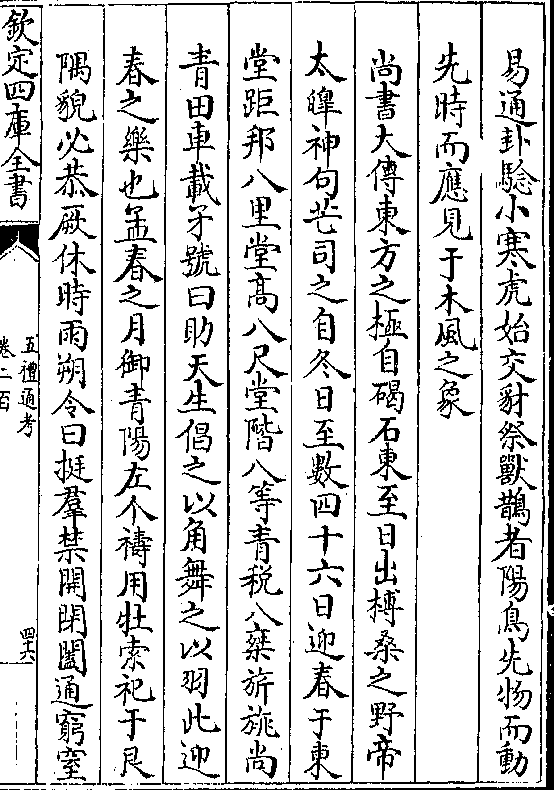 易通卦驗小寒虎始交豺祭獸鵲者陽鳥先物而動
先時而應見于木風之象
尚書大傳東方之極自碣石東至日出榑桑之野帝
太皥神句芒司之自冬日至數四十六日迎春于東
堂距邦八里堂高八尺堂階八等青稅八乗旂旐尚
青田車載矛號曰助天生倡之以角舞之以羽此迎
春之樂也孟春之月御青陽左个禱用牡索祀于艮
隅貌必恭厥休時雨朔令曰挺羣禁開閉闔通窮窒
欽定四庫全書
五禮通考
卷二百
四十六